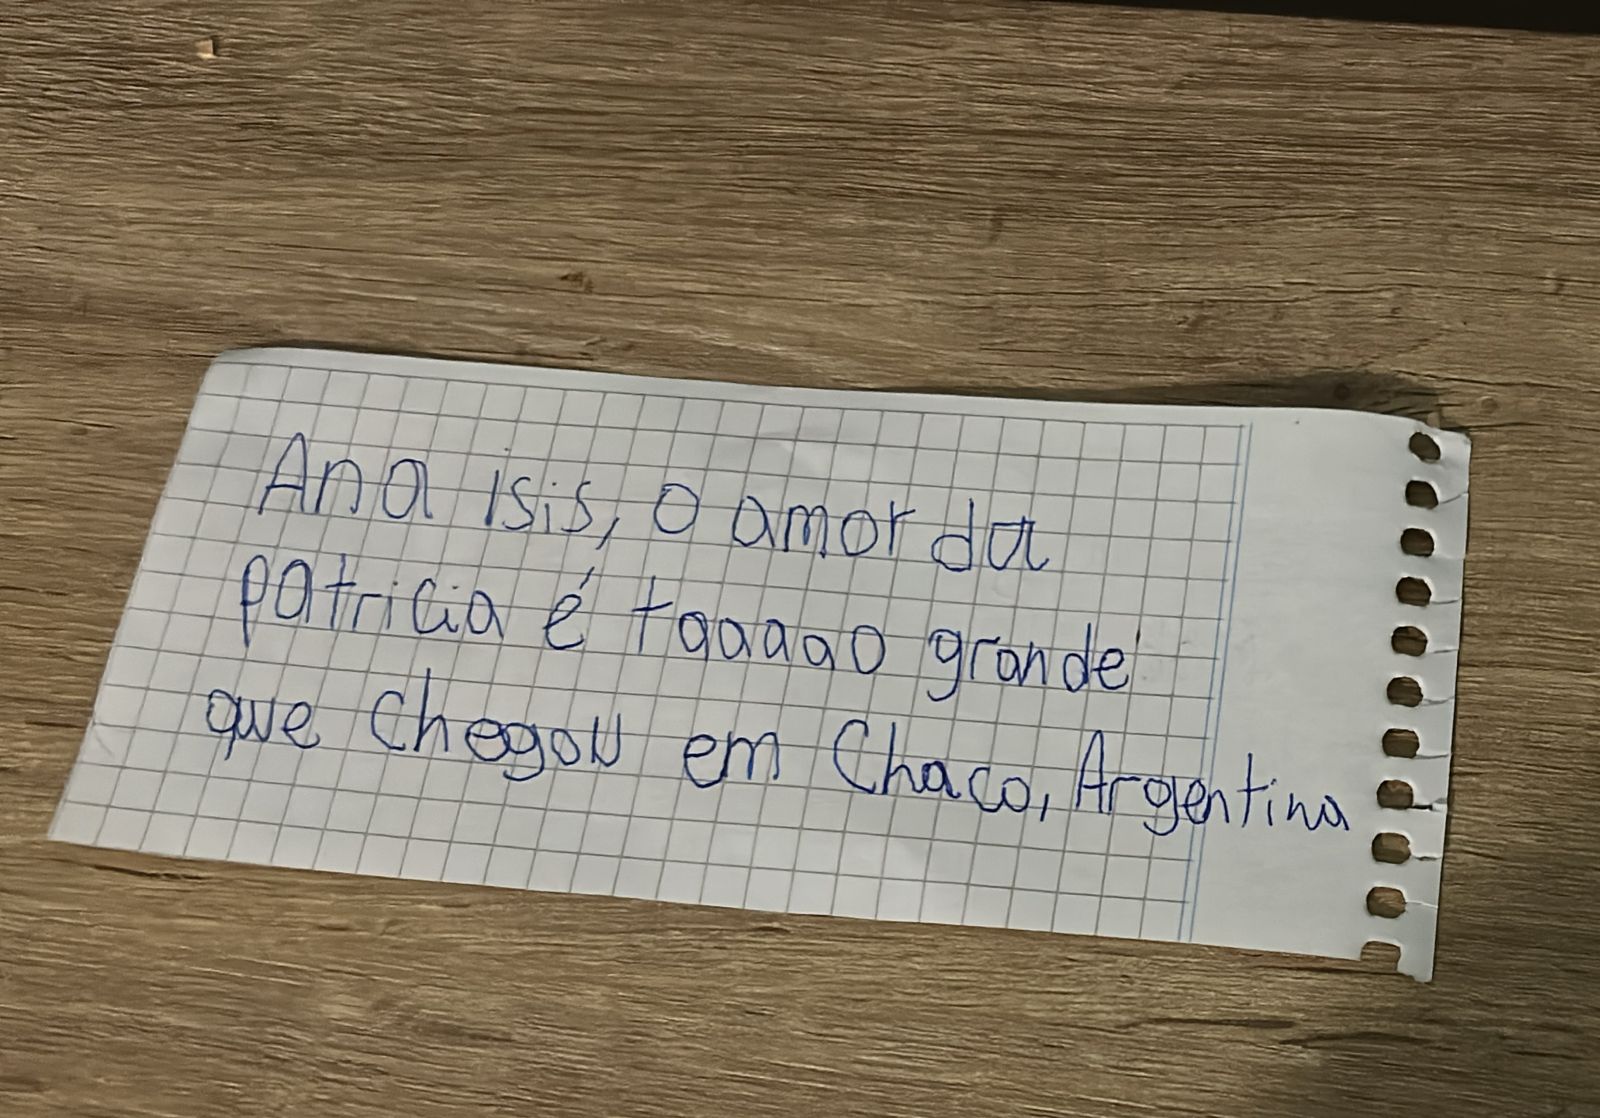 Ana isis, o amor da
patricia é taaaao grande
que chegou em Chaco, Argentina